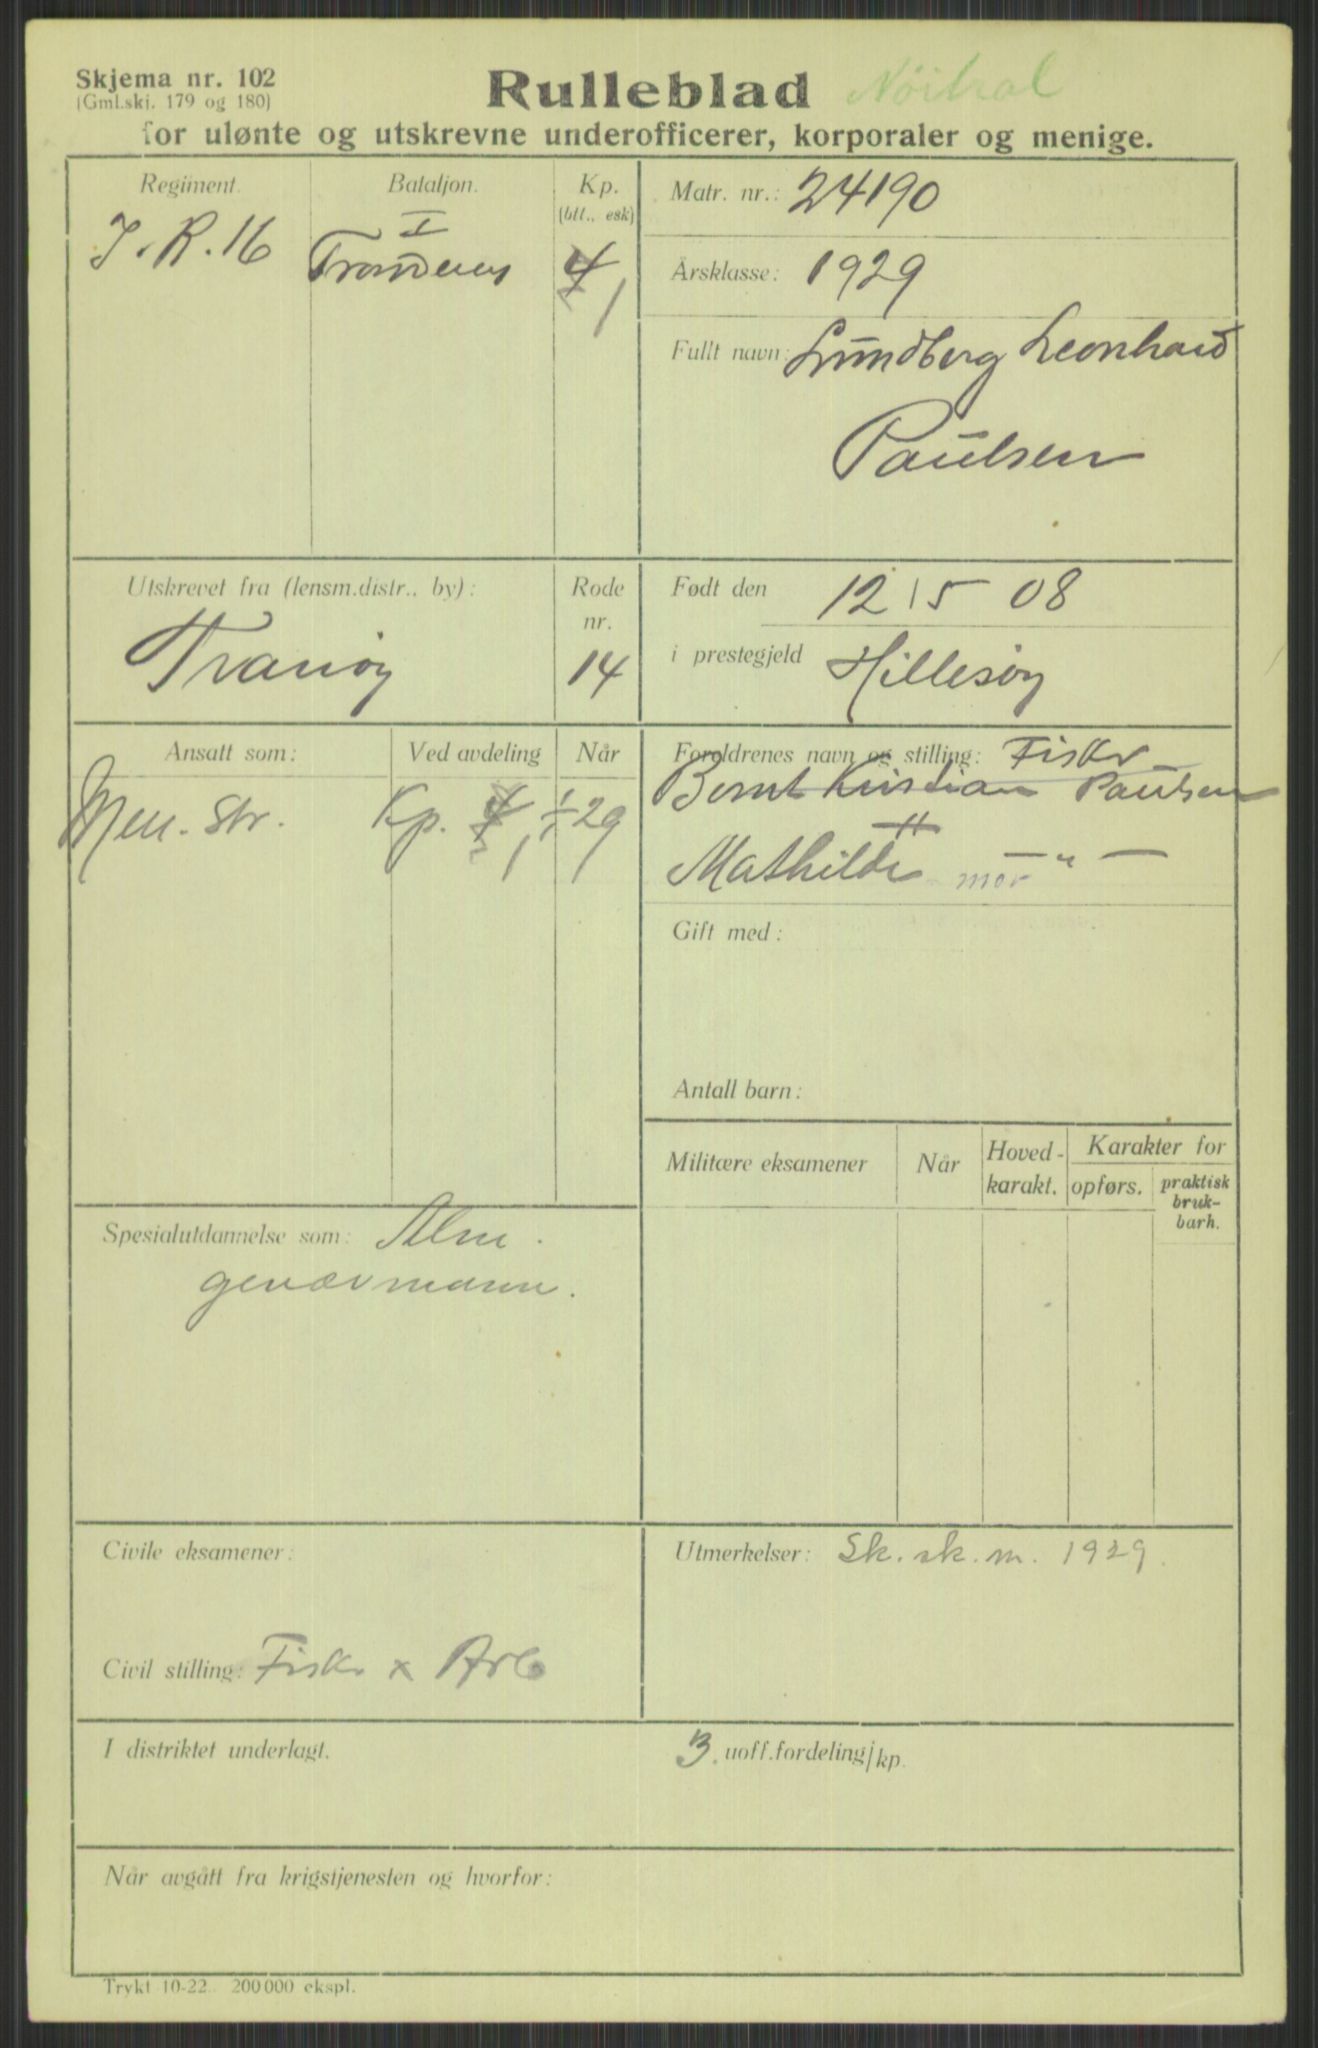 Skjema nr. 102
(Gml.skj. 179 og 180)
Rulleblad Nöitral
for ulønte og utskrevne underofficerer, korporaler og menige.
Regiment. Bataljon. Kp. (btt., esk)
I.R. 16 I Trondenes 4 1
Matr. nr.: 24190
Årsklasse: 1929
Fullt navn: Lundberg Leonhard
Paulsen
Utskrevet fra (lensm.distr., by): Rode nr.
Tranøy 14
Født den 12 15 08
i prestegjeld Hillesøy
Ansatt som: Ved avdeling Når
Men. str. Kp. 4 1 1/1 29
Foreldrenes navn og stilling: Fiskr
Bernt Kristian Paulsen
Mathilde mor — " —
Gift med:
Antall barn:
Militære eksamener Når Hoved-karakt. Karakter for
opførs. praktisk bruk-barh.
Spesialutdannelse som: Alm.
geværmann.
Civile eksamener:
Civil stilling: Fiskr x Arb
Utmerkelser: Sk. sk. m. 1929.
I distriktet underlagt.
3. uoff.fordeling/kp.
Når avgått fra krigstjenesten og hvorfor:
Trykt 10-22. 200 000 ekspl.